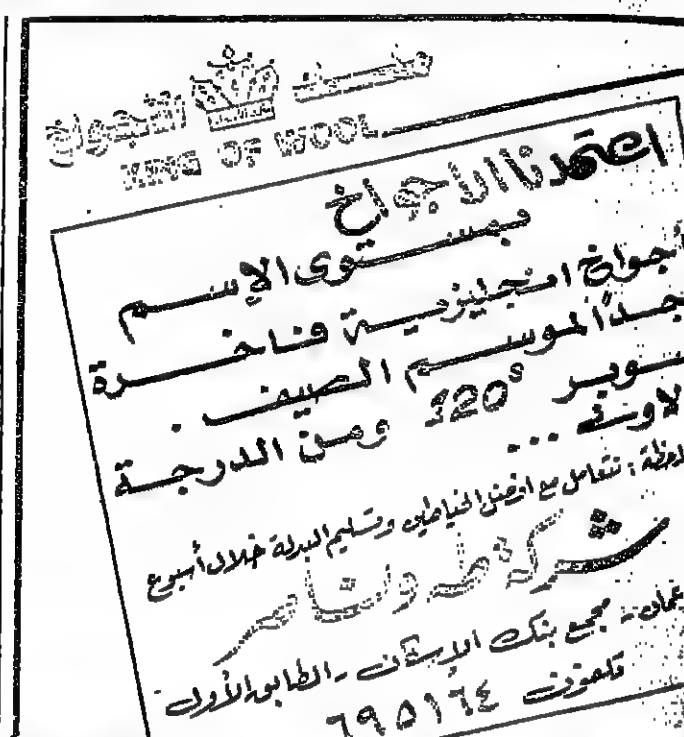 ملك الأجواخ
KING OF WOOL
اعتمدنا الأجواخ
بمستوى الإسم
أجواخ انجليزية فاخرة
جداً لموسم الصيف .
سوبر 120s ومن الدرجة
الاولى ...
ملاحظة : نتعامل مع افضل الخياطين وتسليم البدلة خلال أسبوع
شركة طه وناصر
عمان - مجمع بنك الإسكان - الطابق الأول
تلفون ٦٩٥١٦٤